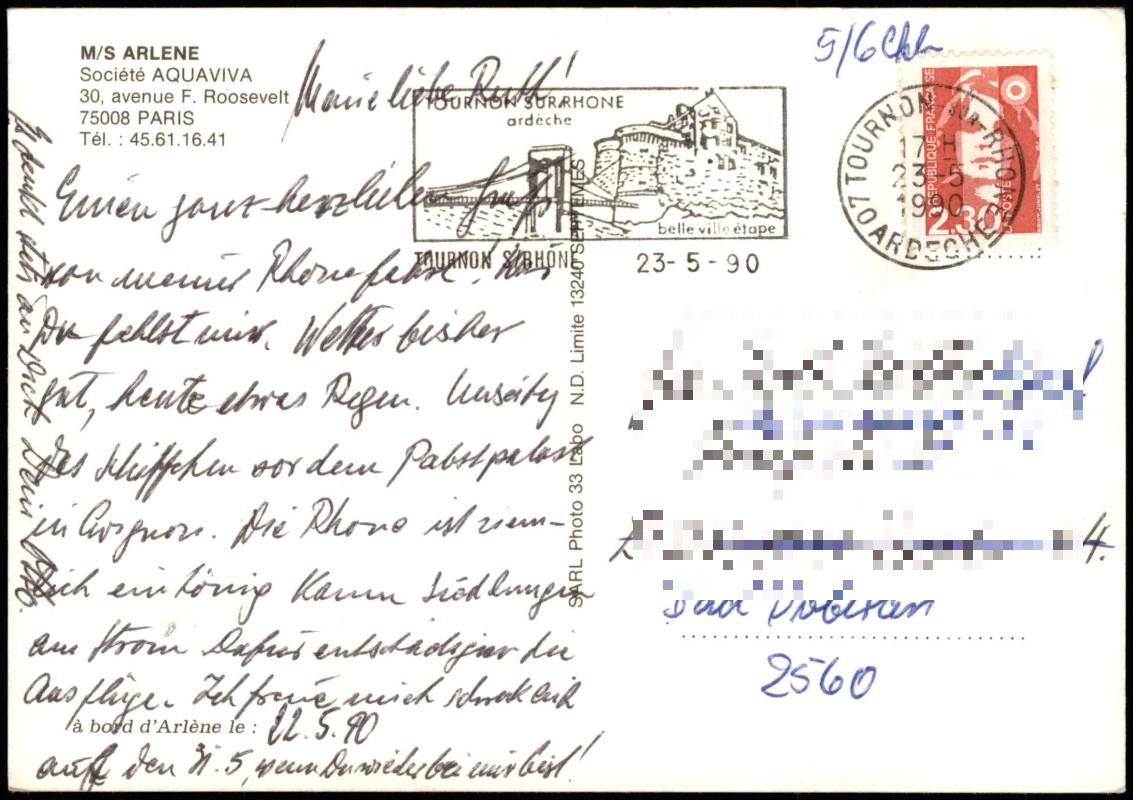 M/S ARLENE
Société AQUAVIVA
30, avenue F. Roosevelt
75008 PARIS
Tél. : 45.61.16.41
Meine liebe Ruth!
Einen ganz herzlichen Gruß
von meiner Rhonefahrt. Nur
Du fehlst mir. Wetter bisher
gut, heute etwas Regen.
das Schiffchen vor dem Pabstpalast
in Avignon. Die Rhone ist ziem-
lich eintönig Kaum Siedlungen
am Strom Dafür entschädigen die
Ausflüge. Ich freue mich schrecklich
à bord d'Arlène le : 22.5.90
auf den 31.5, wenn Du wieder bei mir bist!
Es denkt stets an Dich Dein
SARL Photo 33 Labo N.D. Limite 13240 SEPTEMES
TOURNON SUR RHONE
ardèche
belle ville étape
TOURNON S/RHONE
23-5-90
07 TOURNON SUR-RHONE
17 H
23-5
1990
ARDECHE
REPUBLIQUE FRANÇAISE
LA POSTE
2,30
5/6
4.
Bad Doberan
2560